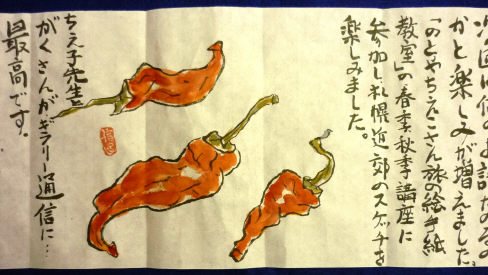 次回は何のお話なのるの
かと楽しみが増えました。
「のとやちえこさん旅の絵手紙
教室」の春季秋季講座に
参加し札幌近郊のスケッチを
楽しみました。
ちえ子先生と
がくさんがギラリー通信に…
最高です。